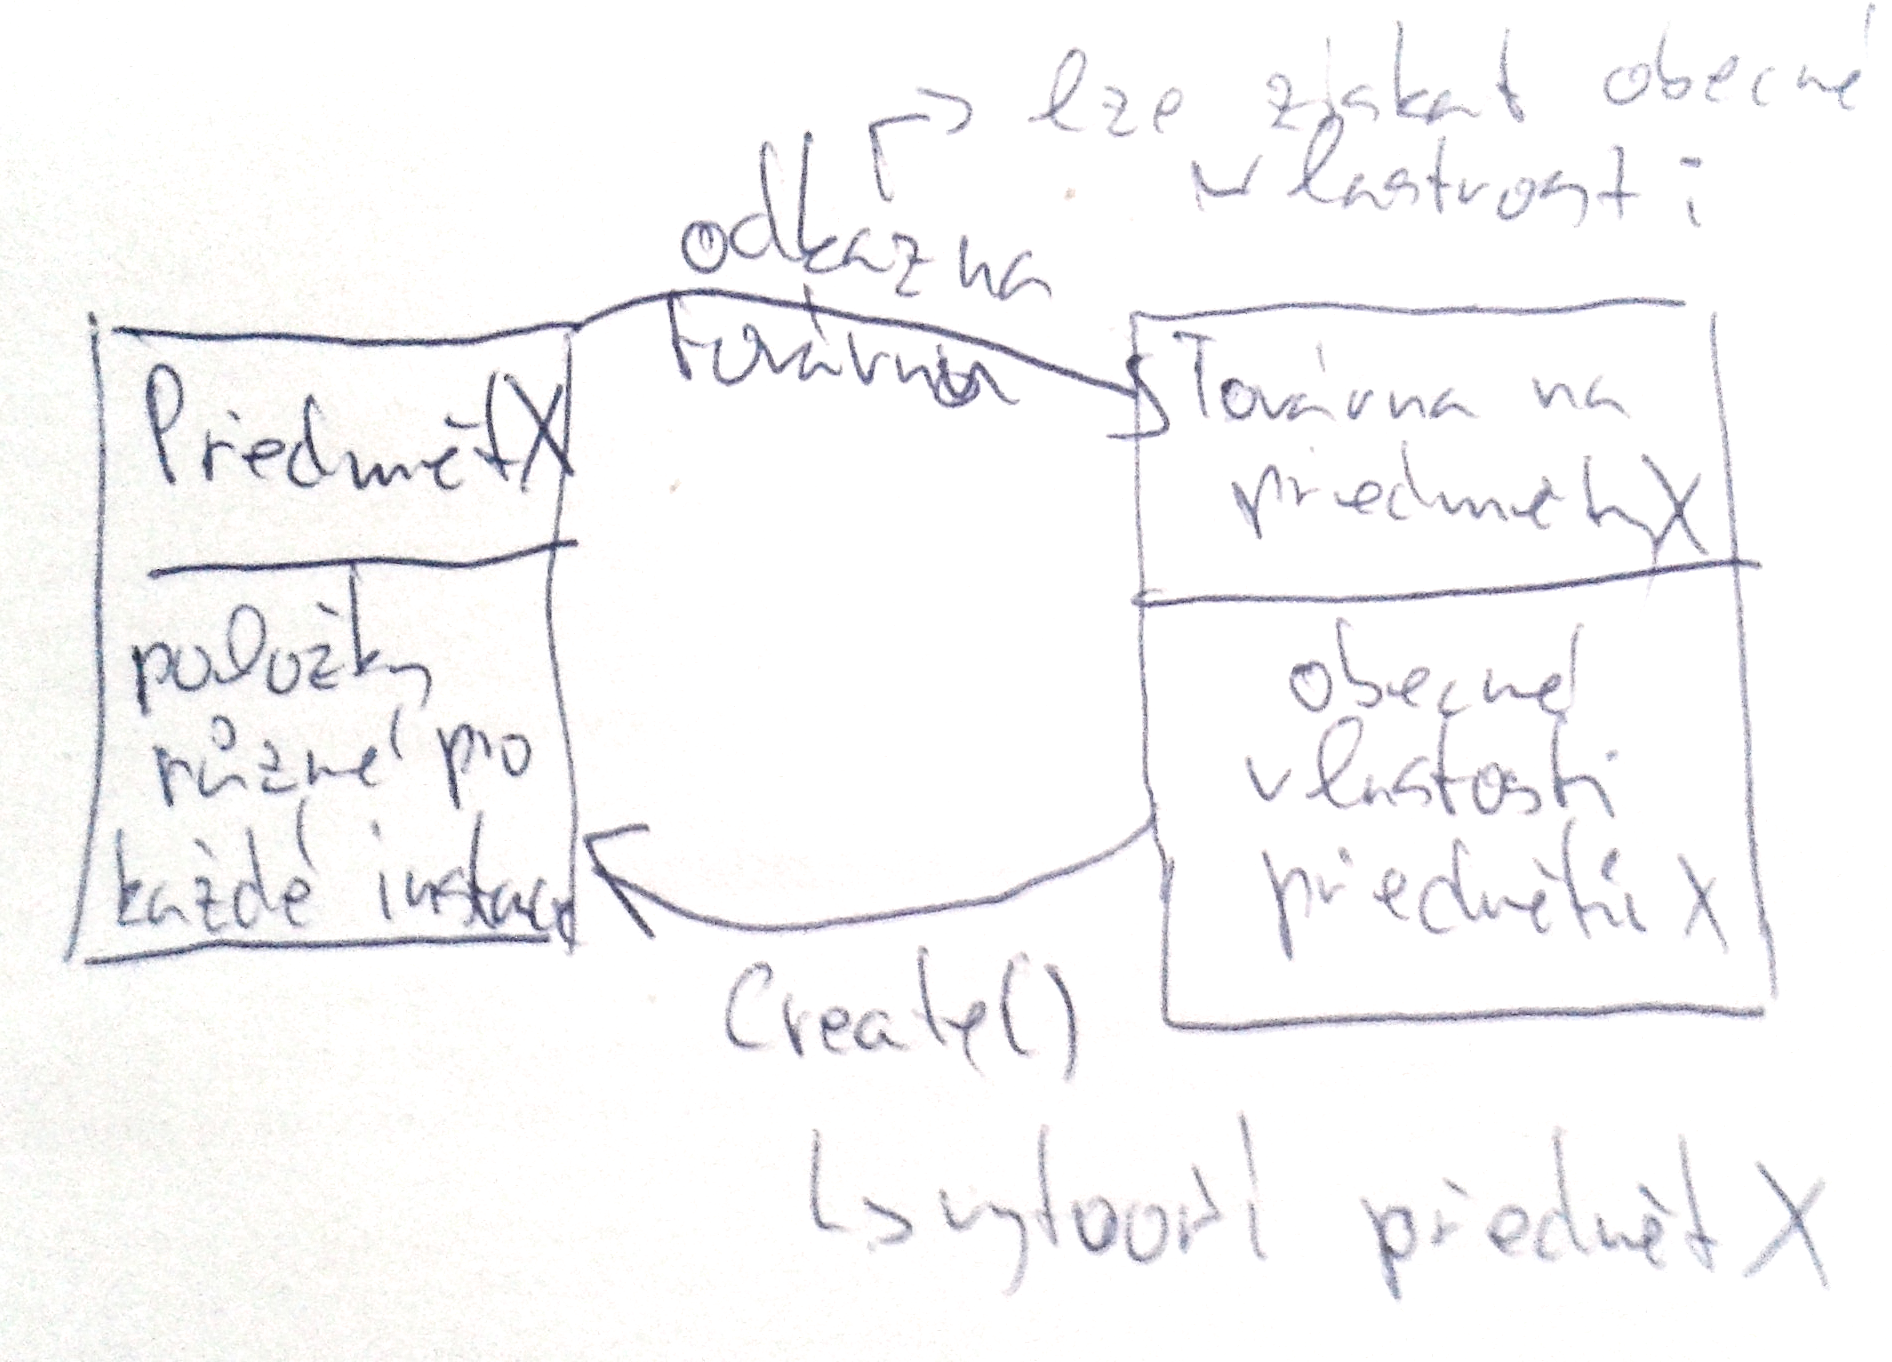 lze získat obecné
vlastnosti
odkaz na
továrnu
Předmět X
položky
různé pro
každé instanci
Továrna na
předměty X
obecné
vlastosti
předmětů X
Create()
vytvoří předmět X